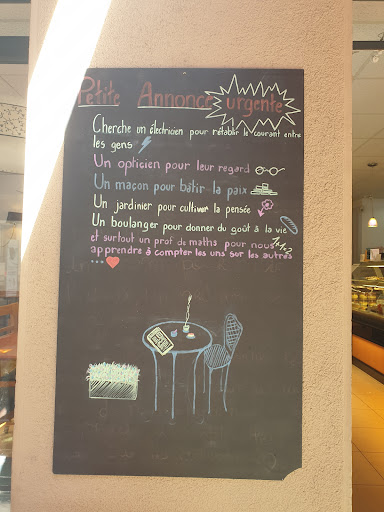 Petite Annonce urgente
Cherche un électricien pour rétablir le courant entre
les gens
Un opticien pour leur regard
Un maçon pour bâtir la paix
Un jardinier pour cultiver la pensée
Un boulanger pour donner du goût à la vie
et surtout un prof de maths pour nous 1+1=2
apprendre à compter les uns sur les autres
...